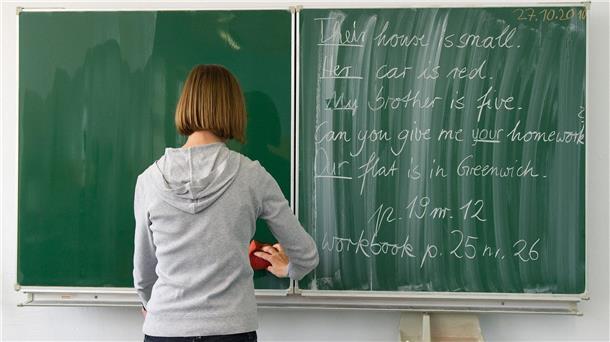 27.10.201
Their house is small.
Her car is red.
My brother is five.
Can you give me your homework?
Our flat is in Greenwich.
p. 19 nr. 12
workbook p. 25 nr. 26